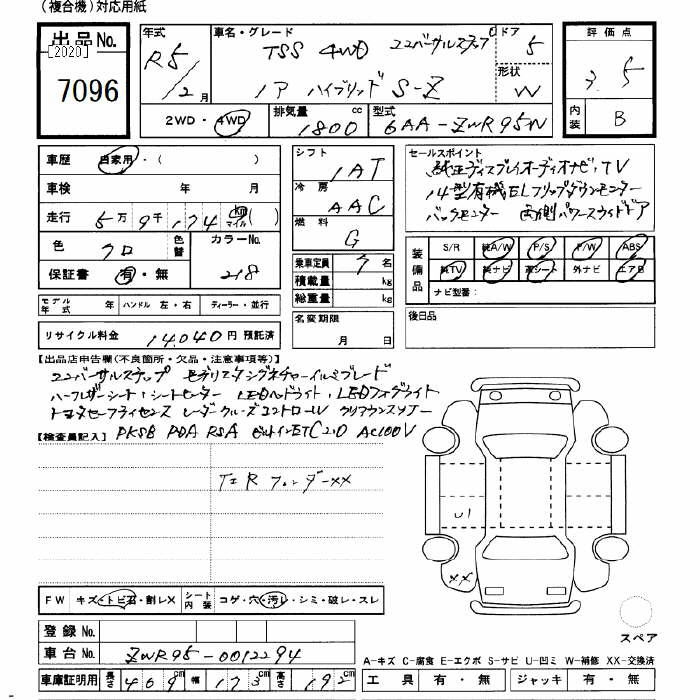 (複合機)対応用紙
出品No. [2020] 7096
年式 R5/12月
車名・グレード TSS 4WD ユニバーサルステップ
ノア ハイブリッド S-Z
ドア 5
形状 W
評価点 3.5
内装 B
2WD・4WD 排気量 1800 cc 型式 6AA-ZWR95W
車歴 自家用・( )
車検 年 月
走行 5万9千174 km マイル( )
色 クロ 色替 カラーNo. 218
保証書 有・無
モデル年式 年 ハンドル 左・右 ディーラー・並行
リサイクル料金 14,040円 預託済
シフト IAT
冷房 AAC
燃料 G
乗車定員 7名
積載量 kg
総重量 kg
名変期限 月 日
セールスポイント
純正ディスプレイオーディオナビ・TV
14型有機ELフリップダウンモニター
バックモニター 両側パワースライドドア
装備品 S/R 純A/W P/S P/W ABS
純TV 純ナビ 革シート 外ナビ エアB
ナビ型番:
後日品
【出品店申告欄(不良箇所・欠品・注意事項等)】
ユニバーサルステップ モデリスタシグネチャーイルミブレード
ハーフレザーシート・シートヒーター LEDヘッドライト・LEDフォグライト
トヨタセーフティセンス レーダークルーズコントロール クリアランスソナー
【検査員記入】 PKSB PDA RSA ビルトインETC2.0 AC100V
左R フェンダーXX
U1
XX
FW キズ・トビ石・割レX シート内装 コゲ・穴・汚レ・シミ・破レ・スレ
登録No.
車台No. ZWR95-0012294
車庫証明用 長さ 469cm 幅 173cm 高さ 192cm
スペア
A-キズ C-腐食 E-エクボ S-サビ U-凹ミ W-補修 XX-交換済
工具 有・無 ジャッキ 有・無